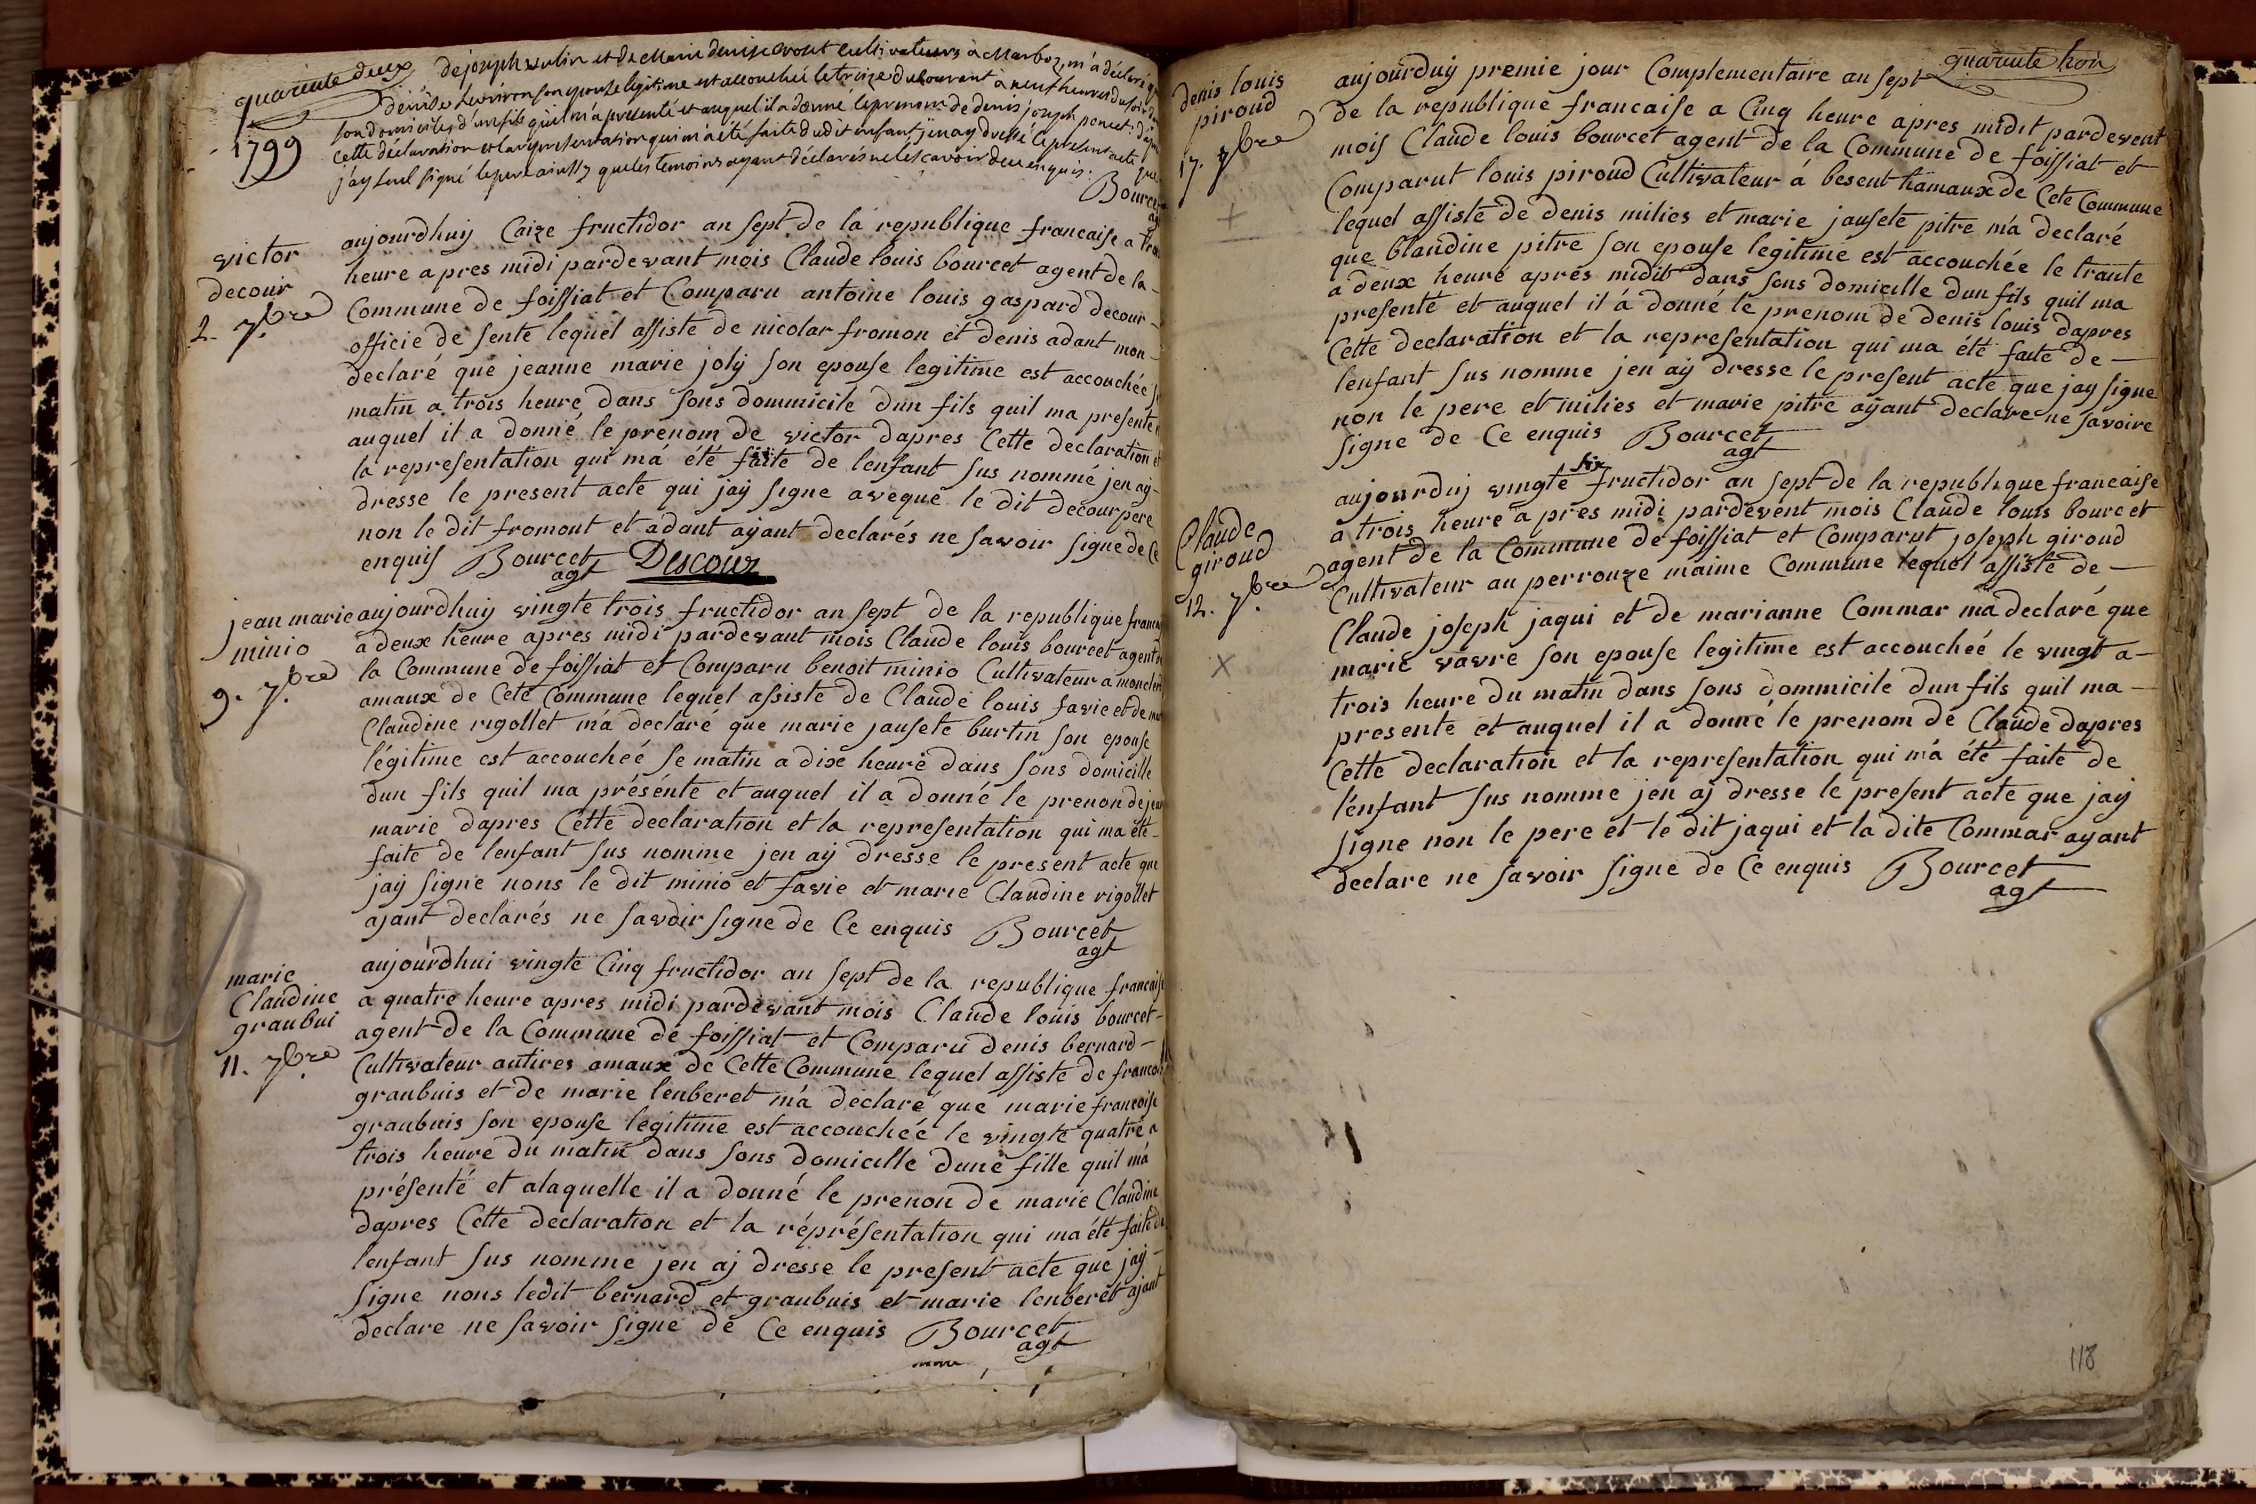 quarente deux
1799
de joseph vulin et de Marie denise cultivateurs à Marboz, m'a déclaré
denise son epouse legitime est accouchée le treize du courant à neuf heures du soir
son domicile, d'un fils qu'il m'a presenté et auquel il a donné le prenom de denis joseph
cette déclaration et la representation qui m'a été faite dudit enfant j'en ay dressé le present acte
j'ay seul signé le pere ainsy que les temoins ayant déclarés ne le scavoir de ce enquis.
Bourcet
victor
decour
2. 7.bre
aujourdhuij Caize fructidor an sept de la republique francaise a
heure apres midi pardevant mois Claude louis bourcet agent de la
Commune de foissiat et Comparu antoine louis gaspard decour
officie de sente lequel assiste de nicolar fromon et denis adant mon
declaré que jeanne marie joly son epouse legitime est accouchée
matin a trois heure dans sons dommicile dun fils quil ma presente
auquel il a donné le prenom de victor dapres Cette declaration et
la representation qui má été faite de lenfant sus nommé jen aij
dresse le present acte qui jaij signe aveque le dit decour pere
non le dit fromont et adant aijant declarés ne savoir signe de Ce
enquis Bourcet Descour
agt
jean marie
minio
9. 7.bre
aujourdhuij vingte trois fructidor an sept de la republique
a deux heure apres midi pardevant mois Claude louis bourcet agent
la Commune de foissiat et Comparu benoit minio Cultivateur a
amaux de Cete Commune lequel assiste de Claude louis favie et de
Claudine rigollet má declaré que marie jausete burtin son epouse
légitime est accoucheé se matin a dix heure dans sons domicille
dun fils quil ma présente et auquel il a donné le prenon de jean
marie dapres Cétte declaration et la representation qui ma été
faite de lenfant sus nomme jen aij dresse le present acte que
jaij signe nons le dit minio et favie et marie Claudine rigollet
ajant declarés ne savoir signe de Ce enquis Bourcet
agt
marie
Claudine
graubui
11. 7.bre
aujourdhui vingte Cinq fructidor an sept de la republique francaise
a quatre heure apres midi pardevant mois Claude louis bourcet
agent de la Commune de foissiat et Comparu denis bernard
Cultivateur autires amaux de Cette Commune lequel assiste de
graubuis et de marie lenberet má declaré que marie francoise
graubuis son epouse legitime est accoucheé le vingte quatre a
trois heure du matin dans sons domicille dune fille quil má
présenté et alaquelle il a donné le prenon de marie Claudine
dapres Cette declaration et la répréséntation qui ma été faite de
lenfant sus nomme jen aj dresse le present acte que jaij
signe nons ledit bernard et graubuis et marie lenberet ajant
declare ne savoir signe de Ce enquis Bourcet
agt
quarente troi
denis louis
piroud
17. 7bre
aujourduy premie jour Complementaire an sept
de la republique francaise a Cinq heure apres midit pardevent
mois Claude louis bourcet agent de la Commune de foissiat et
Comparut louis piroud Cultivateur á besent hamaux de Cete Commune
lequel assiste de denis milies et marie jausete pitre má declaré
que blandine pitre son epouse legitime est accouchée le trante
a deux heure aprés midit dans sons domicille dun fils quil ma
presenté et auquel il á donné le prenom de denis louis dapres
Cette declaration et la representation qui ma été faite de
lenfant sus nomme jen aij dresse le present acte que jay signe
non le pere et milies et marie pitre aijant declare ne savoire
signe de Ce enquis Bourcet
agt
Claude
giroud
12. 7.bre
six
aujourduj vingte fructidor an sept de la republique francaise
a trois heure a pres midi pardevent mois Claude louis bourcet
agent de la Commune de foissiat et Comparut joseph giroud
Cultivateur au perrouze maime Commune lequel assiste de
Claude joseph jaqui et de marianne Commar má declaré que
marie vavre son epouse legitime est accoucheé le vingt a
trois heure du matin dans sons dommicile dun fils quil ma
presente et auquel il a donné le prenom de Claude dapres
Cette declaration et la representation qui má été faite de
lénfant sus nomme jen aj dresse le present acte que jaij
signe non le pere et le dit jaqui et la dite Commar ayant
declare ne savoir signe de Ce enquis Bourcet
agt
118